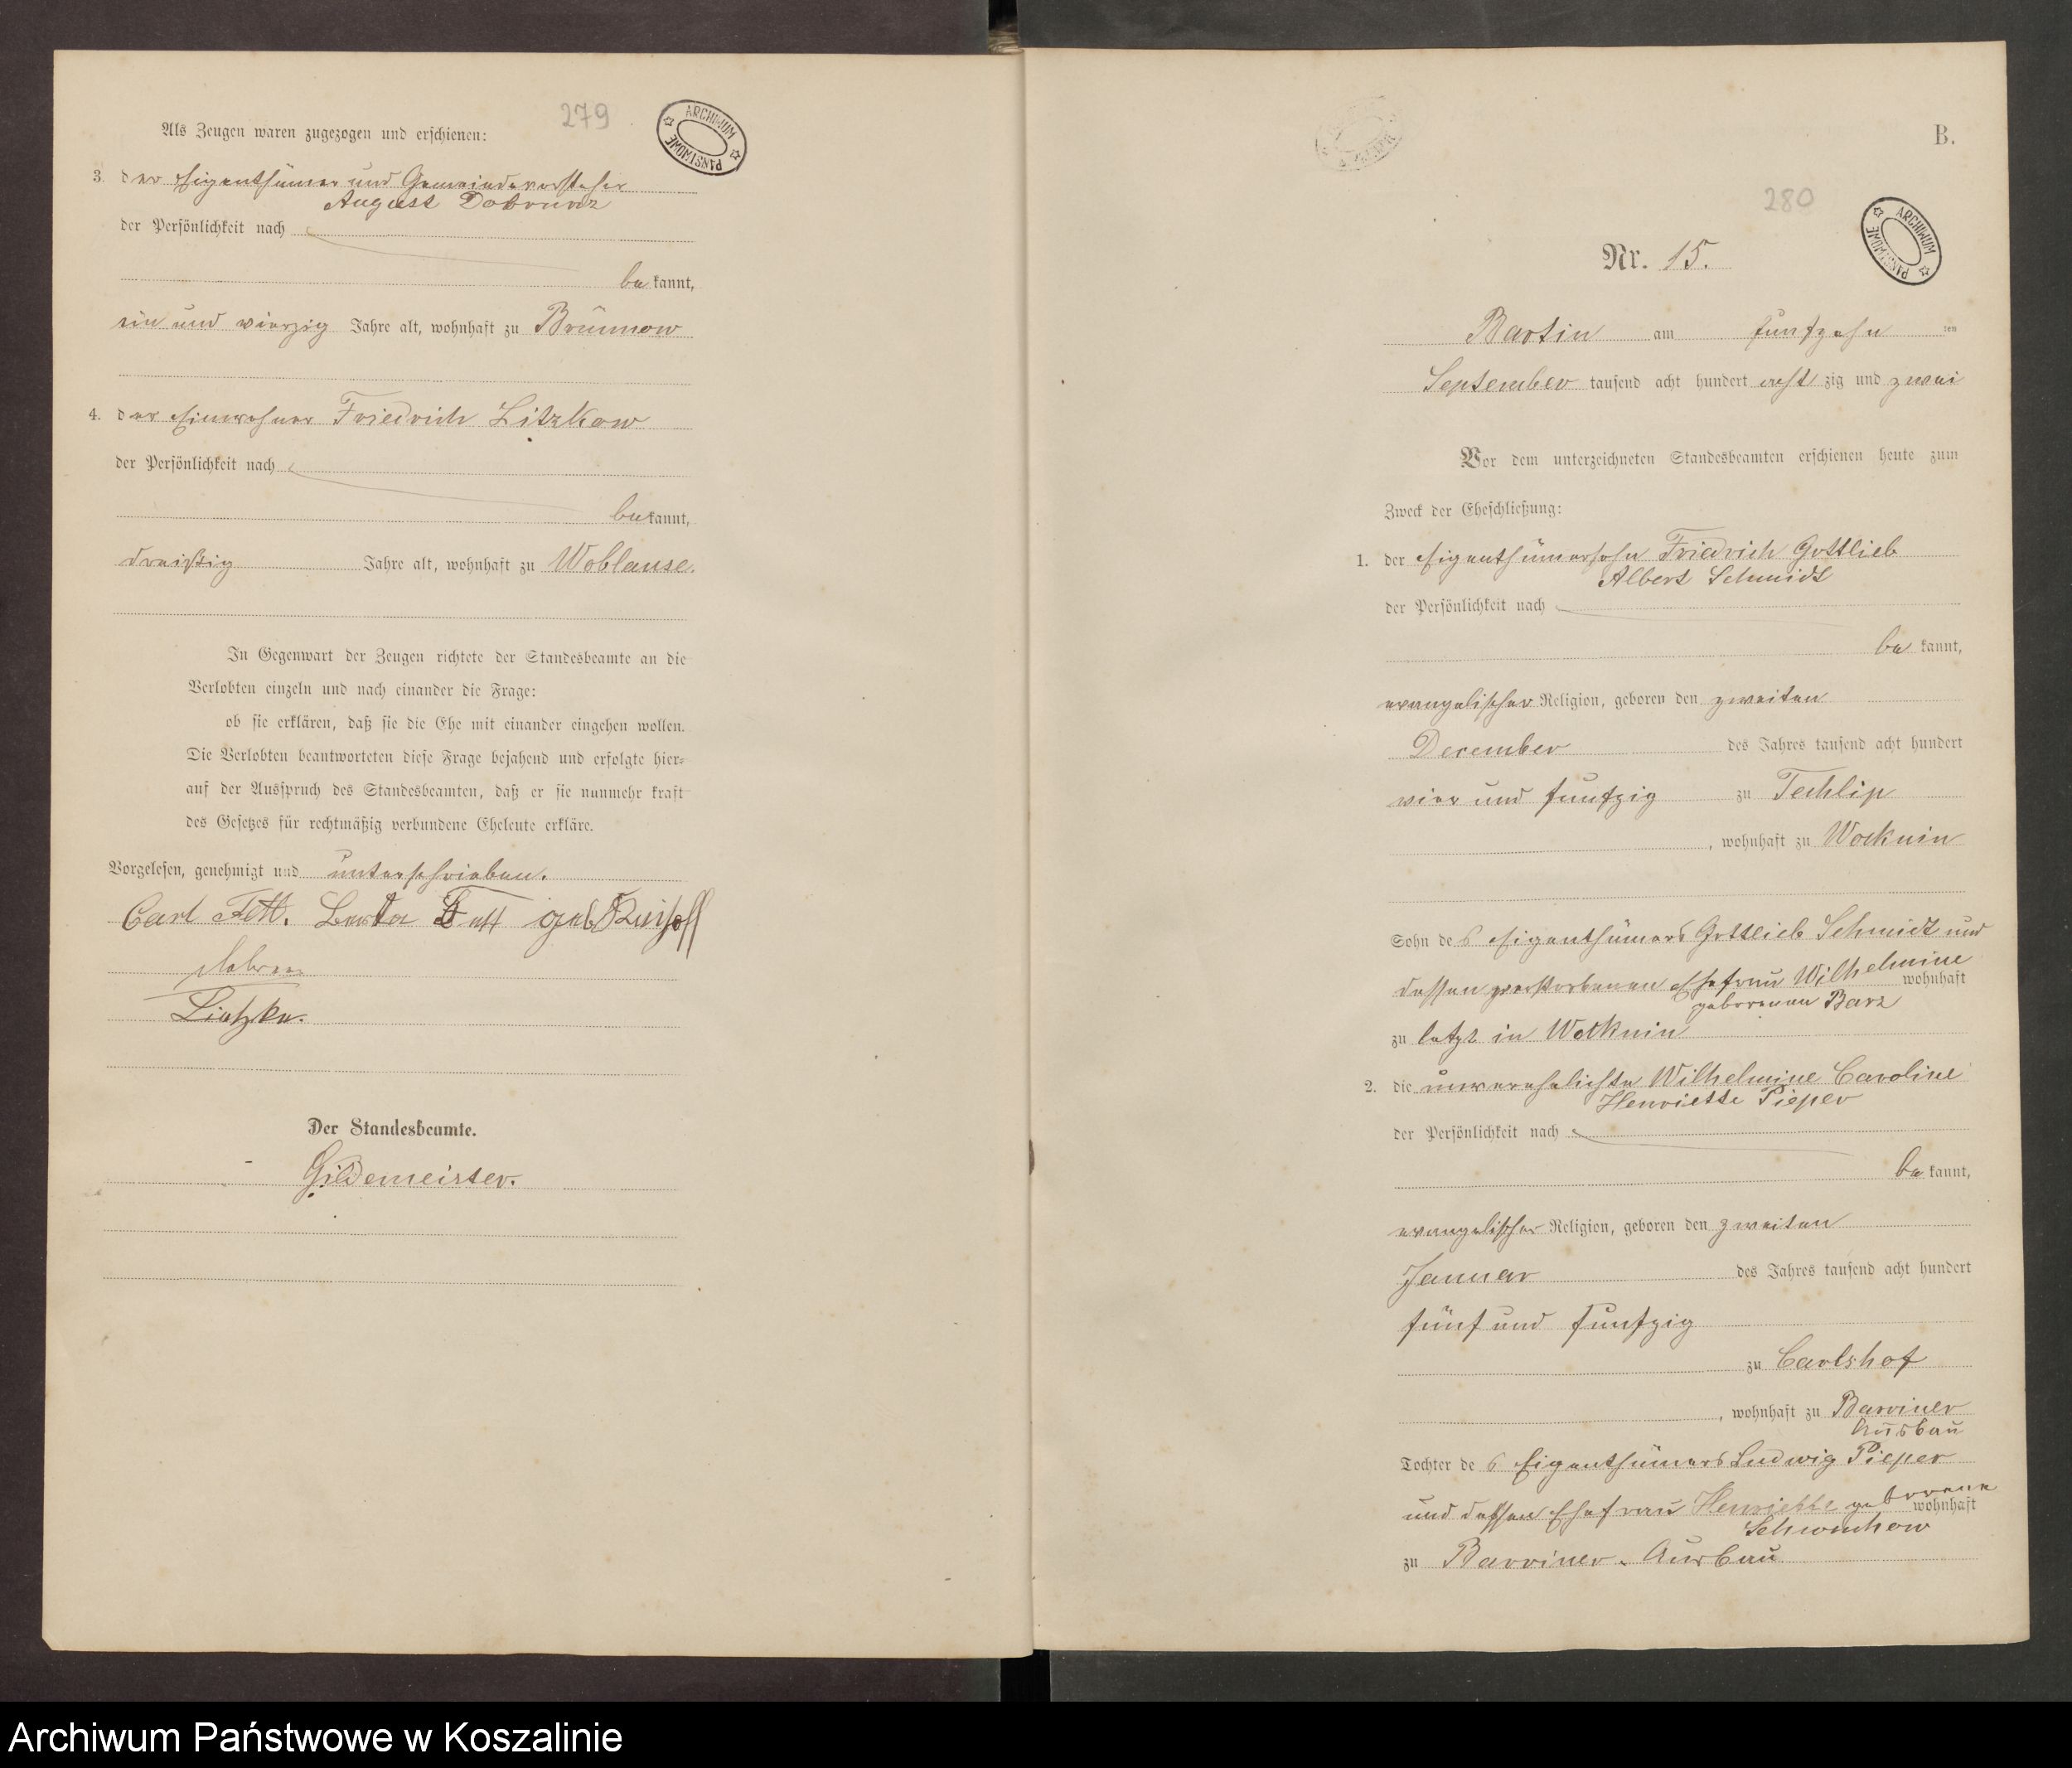 279
ARCHIWUM PAŃSTWOWE
Als Zeugen waren zugezogen und erschienen:
3. der Eigenthümer und Gemeindevorsteher
August Dobrunz
der Persönlichkeit nach
be kannt,
ein und vierzig Jahre alt, wohnhaft zu Brünnow
4. der Einwohner Friedrich Litzkow
der Persönlichkeit nach
be kannt,
dreißig Jahre alt, wohnhaft zu Woblanse.
In Gegenwart der Zeugen richtete der Standesbeamte an die
Verlobten einzeln und nach einander die Frage:
ob sie erklären, daß sie die Ehe mit einander eingehen wollen.
Die Verlobten beantworteten diese Frage bejahend und erfolgte hier-
auf der Ausspruch des Standesbeamten, daß er sie nunmehr kraft
des Gesetzes für rechtmäßig verbundene Eheleute erkläre.
Vorgelesen, genehmigt und unterschrieben.
Carl Fett. Berta Fett geb
Der Standesbeamte.
Gildemeister.
B.
280
ARCHIWUM PAŃSTWOWE
Nr. 15.
Bartin am funfzehn ten
September tausend acht hundert acht zig und zwei
Vor dem unterzeichneten Standesbeamten erschienen heute zum
Zweck der Eheschließung:
1. der Eigenthümersohn Friedrich Gottlieb
Albert Schmidt
der Persönlichkeit nach
be kannt,
evangelischer Religion, geboren den zweiten
December des Jahres tausend acht hundert
vier und funfzig zu Techlip
, wohnhaft zu Wocknin
Sohn de s Eigenthümers Gottlieb Schmidt und
dessen verstorbenen Ehefrau Wilhelmine
wohnhaft
geborenen Barz
zu letzt in Wocknin
2. die unverehelichte Wilhelmine Caroline
Henriette Pieper
der Persönlichkeit nach
be kannt,
evangelischer Religion, geboren den zweiten
Januar des Jahres tausend acht hundert
fünf und funfzig
zu Carlshof
, wohnhaft zu Barviner
Ausbau
Tochter de s Eigenthümers Ludwig Pieper
und dessen Ehefrau Henriette geborene
wohnhaft
Schwuchow
zu Barviner-Ausbau
Archiwum Państwowe w Koszalinie